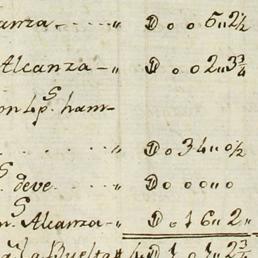 anza ..... „ D o o 6 „ 2½
Alcanza - „ D o o 2 „ 3¾
on Lp.S ham-
. . . . „ D o 34 „ 0½
S. deve . . D o o o „ o
n. Alcanza - „ D o 1 6 „ 2 „
a la Vuelta